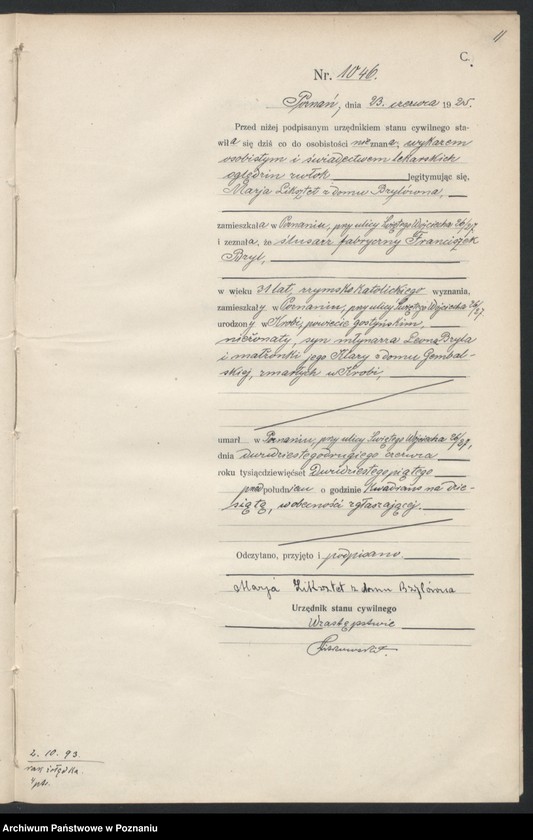 11
C.
Nr. 1046.
Poznań, dnia 23. czerwca 1925.
Przed niżej podpisanym urzędnikiem stanu cywilnego sta-
wiła się dziś co do osobistości nieznana, wykazem
osobistym i świadectwem lekarskich
oględzin zwłok legitymując się,
Marja Liksztet z domu Brylówna,
zamieszkała w Poznaniu, przy ulicy Świętego Wojciecha 26/27
i zeznała, że ślusarz fabryczny Franciszek
Bryl,
w wieku 31 lat, rzymskokatolickiego wyznania,
zamieszkały w Poznaniu, przy ulicy Świętego Wojciecha 26/27
urodzony w Krobi, powiecie gostyńskim,
nieżonaty, syn młynarza Leona Bryla
i małżonki jego Klary z domu Gembal-
skiej, zmarłych w Krobi,
umarł w Poznaniu, przy ulicy Świętego Wojciecha 26/27,
dnia dwudziestegodrugiego czerwca
roku tysiącdziewięćset Dwudziestego piątego
przed południem o godzinie kwadrans na dzie-
siątą, w obecności zgłaszającej.
Odczytano, przyjęto i podpisano.
Marja Liksztet z domu Brylówna
Urzędnik stanu cywilnego
W zastępstwie
2. 10. 93
rak żołądka.
Archiwum Państwowe w Poznaniu